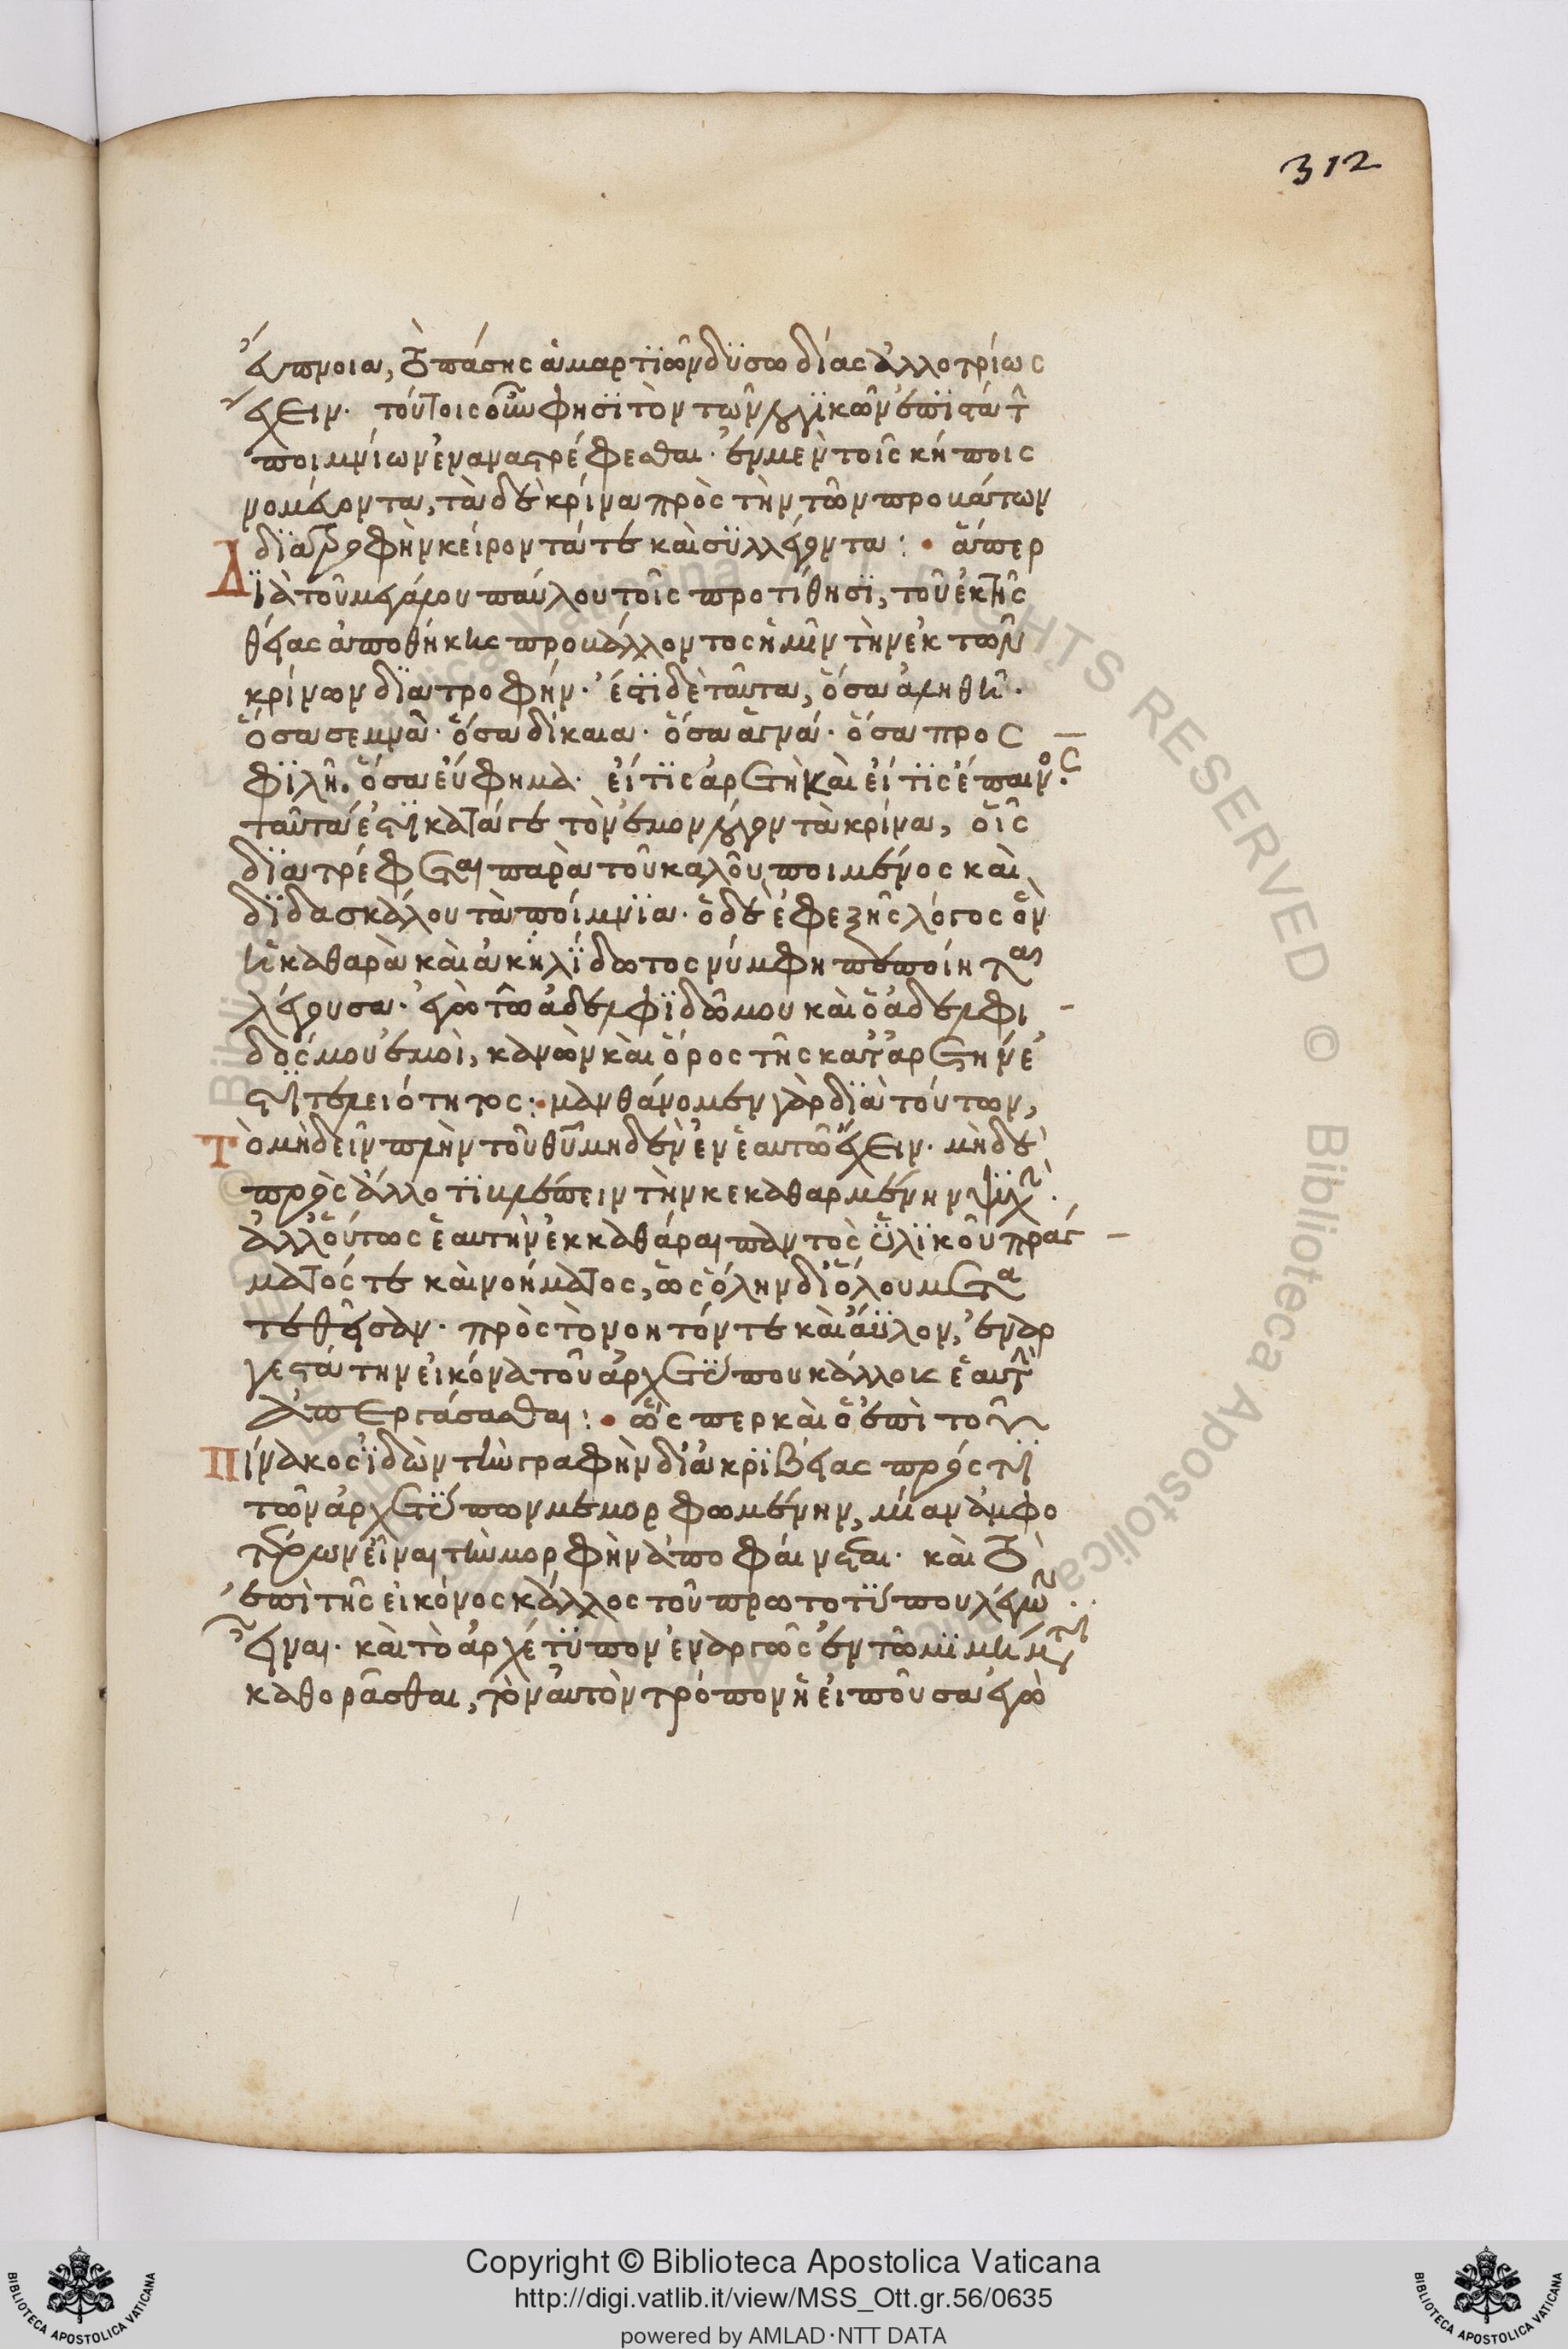 312
εὔπνοια, τὸ πάσης ἁμαρτϊῶν δϋσωδίας ἀλλοτρίως
ἔχειν. τούτοις οὖν φησῒ τὸν τῶν λογϊκῶν ἐπϊστάτην
ποιμνίων ἐναναστρέφεσθαι. ἐν μὲν τοῖς κήποις
νομεύοντα, τὰ δὲ κρίνα πρὸς τὴν τῶν προβάτων
δϊατροφὴν κείροντά τε καὶ σϋλλέγοντα: • ἅπερ
Δϊὰ τοῦ μεγάλου παύλου τοῖς προτίθησϊ, τοῦ ἐκ τῆς
θείας ἀποθήκης προβάλλοντος ἡμῖν τὴν ἐκ τῶν
κρίνων δϊατροφήν. ἔστϊ δὲ ταῦτα, ὅσα ἀληθῆ.
ὅσα σεμνὰ. ὅσα δίκαια. ὅσα ἁγνά. ὅσα προσ
φϊλῆ. ὅσα εὔφημα. εἴ τϊς ἀρετὴ καὶ εἴ τϊς ἔπαινος.
ταῦτά ἐστι κατά γε τὸν ἐμὸν λόγον τὰ κρίνα, οἷς
δϊατρέφεται παρὰ τοῦ καλοῦ ποιμένος καὶ
δϊδασκάλου τὰ ποίμνϊα. ὁ δὲ ἐφεξῆς λόγος ὃν
ἡ καθαρὰ καὶ ἀκηλϊδωτος νύμφη πεποίηται
λέγουσα. ἐγὼ τῶ ἀδελφϊδῶ μου καὶ ὁ ἀδελφι
δός μου ἐμοὶ, κανὼν καὶ ὅρος τῆς κατ' ἀρετήν ἐ
στι τελειότητος: • μανθάνομεν γὰρ δϊὰ τούτων,
Τὸ μὴ δεῖν πλὴν τοῦ θεοῦ μηδὲν ἐν ἑαυτῶ ἔχειν. μὴδὲ
πρὸς ἄλλο τϊ βλέπειν τὴν κεκαθαρμένην ψυχὴν.
ἀλλ' οὕτως ἑαυτὴν ἐκκαθάραι παντὸς ϋλϊκοῦ πράγ
ματός τε καὶ νοήματος, ὡς ὅλην δι' ὅλου μετα
τεθεῖσαν. πρὸς τὸ νοητόν τε καὶ ἄϋλον, ἐναρ
γεστάτην εἰκόνα τοῦ ἀρχετϋπου κάλλους ἑαυτὴν
ἀπεργάσασθαι: • ὥσπερ καὶ ὁ ἐπὶ τοῦ
Πίνακος ἰδὼν τὴν γραφὴν δι' ἀκρϊβείας πρός τι
τῶν ἀρχετϋπων μεμορφωμένην, μίαν ἀμφο
τέρων εἶναι τὴν μορφὴν ἀποφαίνεται. καὶ τὸ
ἐπὶ τῆς εἰκόνος κάλλος τοῦ πρωτοτϋπου λέγων
εἶναι. καὶ τὸ ἀρχέτϋπον ἐναργῶς ἐν τῶ μϊμήματι
καθορᾶσθαι, τὸν αὐτὸν τρόπον ἡ εἰποῦσα ἐγὼ
Copyright © Biblioteca Apostolica Vaticana
http://digi.vatlib.it/view/MSS_Ott.gr.56/0635
powered by AMLAD·NTT DATA